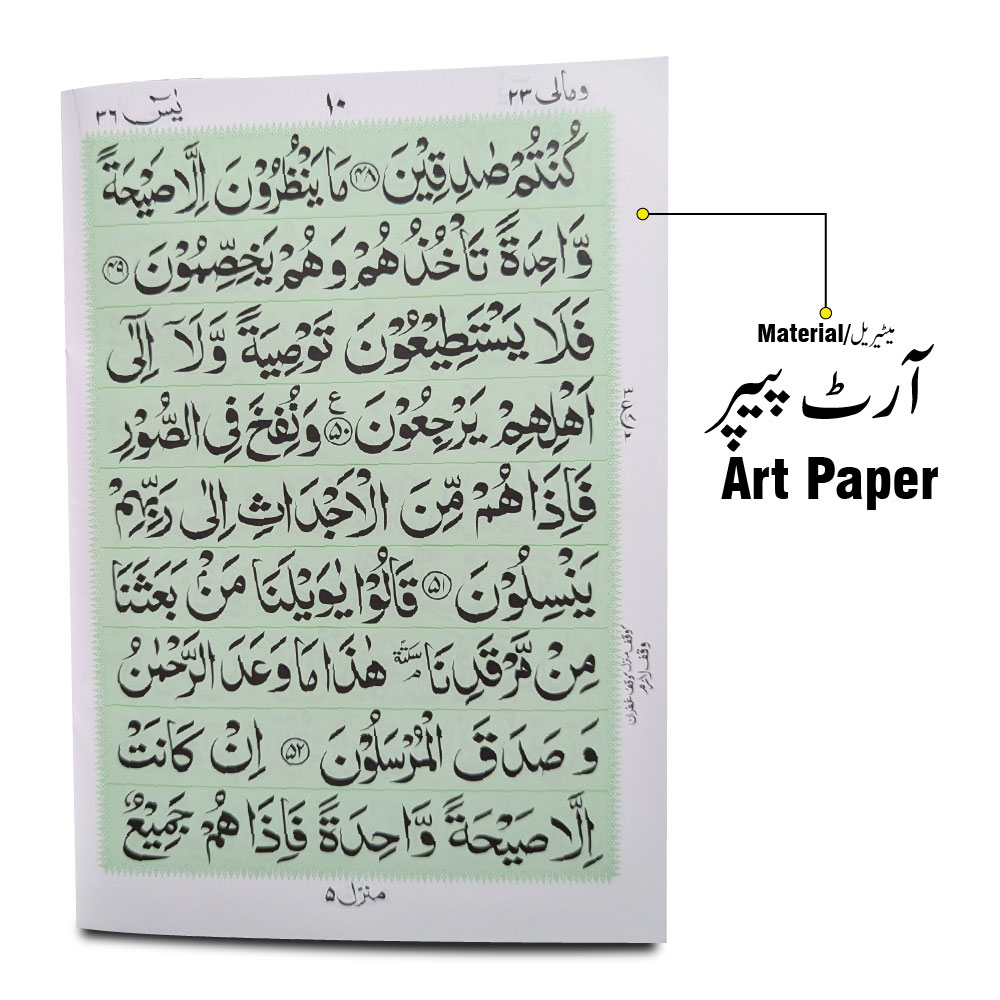 یٰسٓ ۳۶ ۱۰ ومالی ۲۳
كُنْتُمْ صٰدِقِيْنَ ﴿۴۸﴾ مَا يَنْظُرُوْنَ اِلَّا صَيْحَةً
وَّاحِدَةً تَاْخُذُهُمْ وَهُمْ يَخِصِّمُوْنَ ﴿۴۹﴾
فَلَا يَسْتَطِيْعُوْنَ تَوْصِيَةً وَّلَآ اِلٰٓى
اَهْلِهِمْ يَرْجِعُوْنَ ﴿۵۰﴾ ع وَنُفِخَ فِى الصُّوْرِ
فَاِذَا هُمْ مِّنَ الْاَجْدَاثِ اِلٰى رَبِّهِمْ
يَنْسِلُوْنَ ﴿۵۱﴾ قَالُوْا يٰوَيْلَنَا مَنْۢ بَعَثَنَا
مِنْ مَّرْقَدِنَا سكتة م هٰذَا مَا وَعَدَ الرَّحْمٰنُ
وَ صَدَقَ الْمُرْسَلُوْنَ ﴿۵۲﴾ اِنْ كَانَتْ
اِلَّا صَيْحَةً وَّاحِدَةً فَاِذَا هُمْ جَمِيْعٌ
وقف لازم
وقف منزل وقف غفران
منزل ۵
Material/میٹیریل
آرٹ پیپر
Art Paper